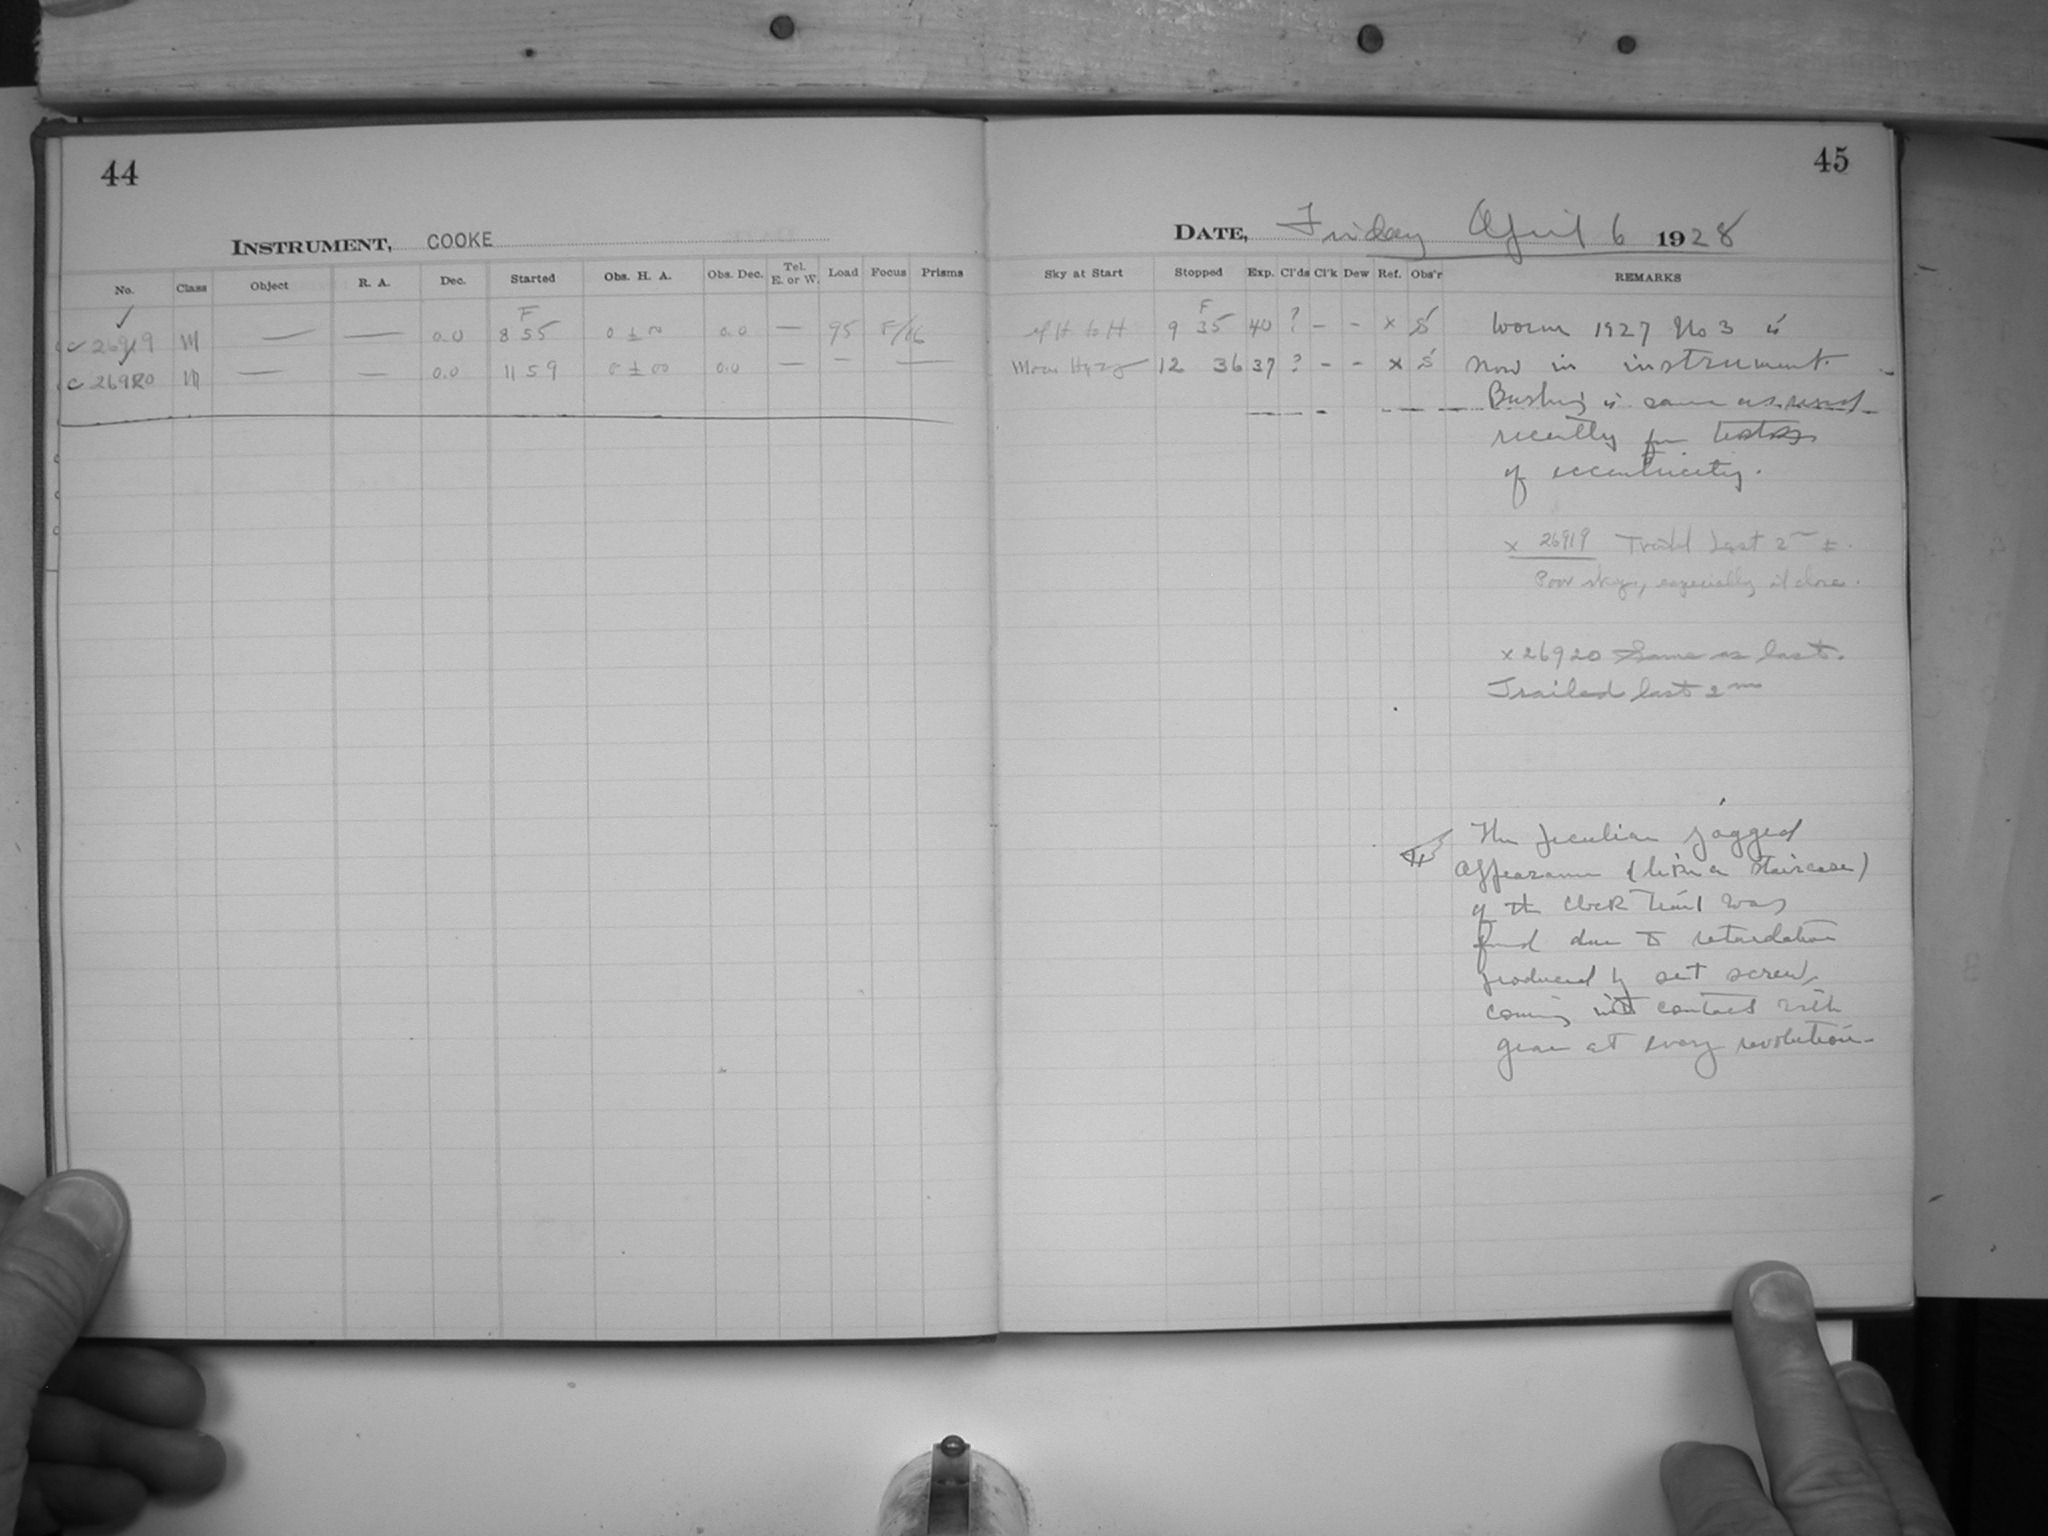 44
INSTRUMENT, COOKE
No. Class Object R. A. Dec. Started Obs. H. A. Obs. Dec. Tel. E. or W. Load Focus Prisms
F
✓ 26919 M — — 0.0 8 55 0 ± 00 0.0 — 95 F/16
c 26920 M — — 0.0 11 59 0 ± 00 0.0 — — —
45
DATE, Friday April 6 1928
Sky at Start Stopped Exp. Cl'ds Cl'k Dew Ref. Obs'r REMARKS
F
to H 9 35 40 ? - - x S Worm 1927 No 3 is
Moon Hazy 12 36 37 ? - - x S now in instrument.
Bushing is same as used
recently for tests
of eccentricity.
x 26919 Trailed Last 2m ±.
Poor sky, especially at close.
x 26920 Same as last.
Trailed last 2m
The peculiar jagged
appearance (like a staircase)
of the clock trail was
found due to retardation
produced by set screw
coming into contact with
gear at every revolution-